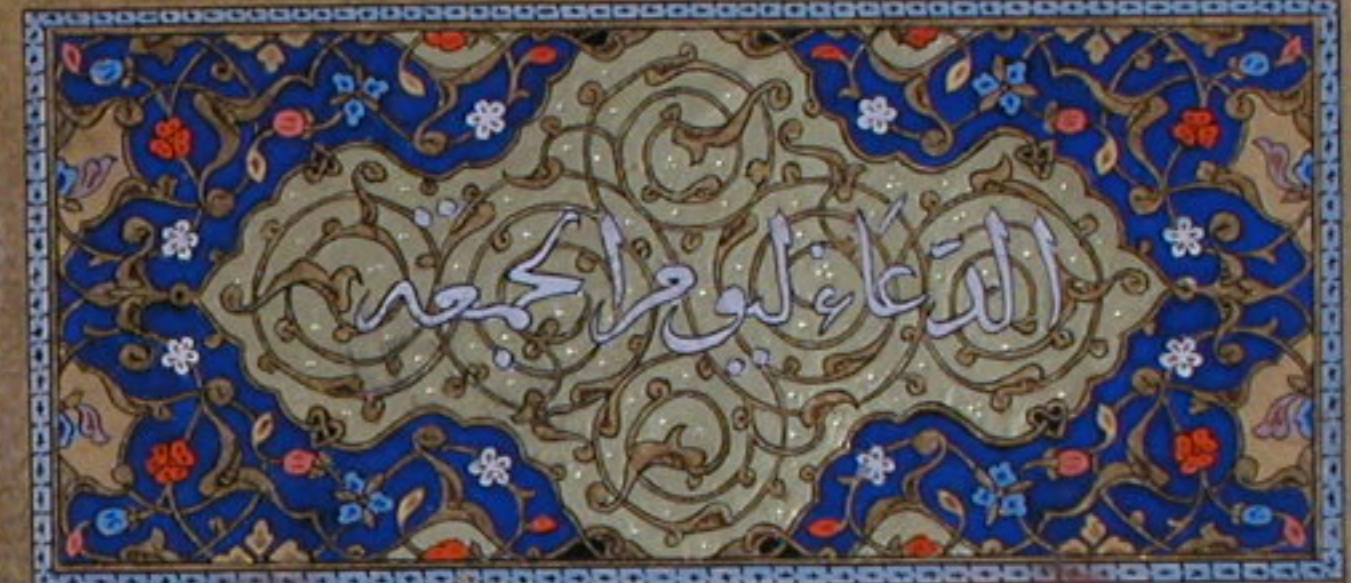 الدّعَاء ليوم الجمعة